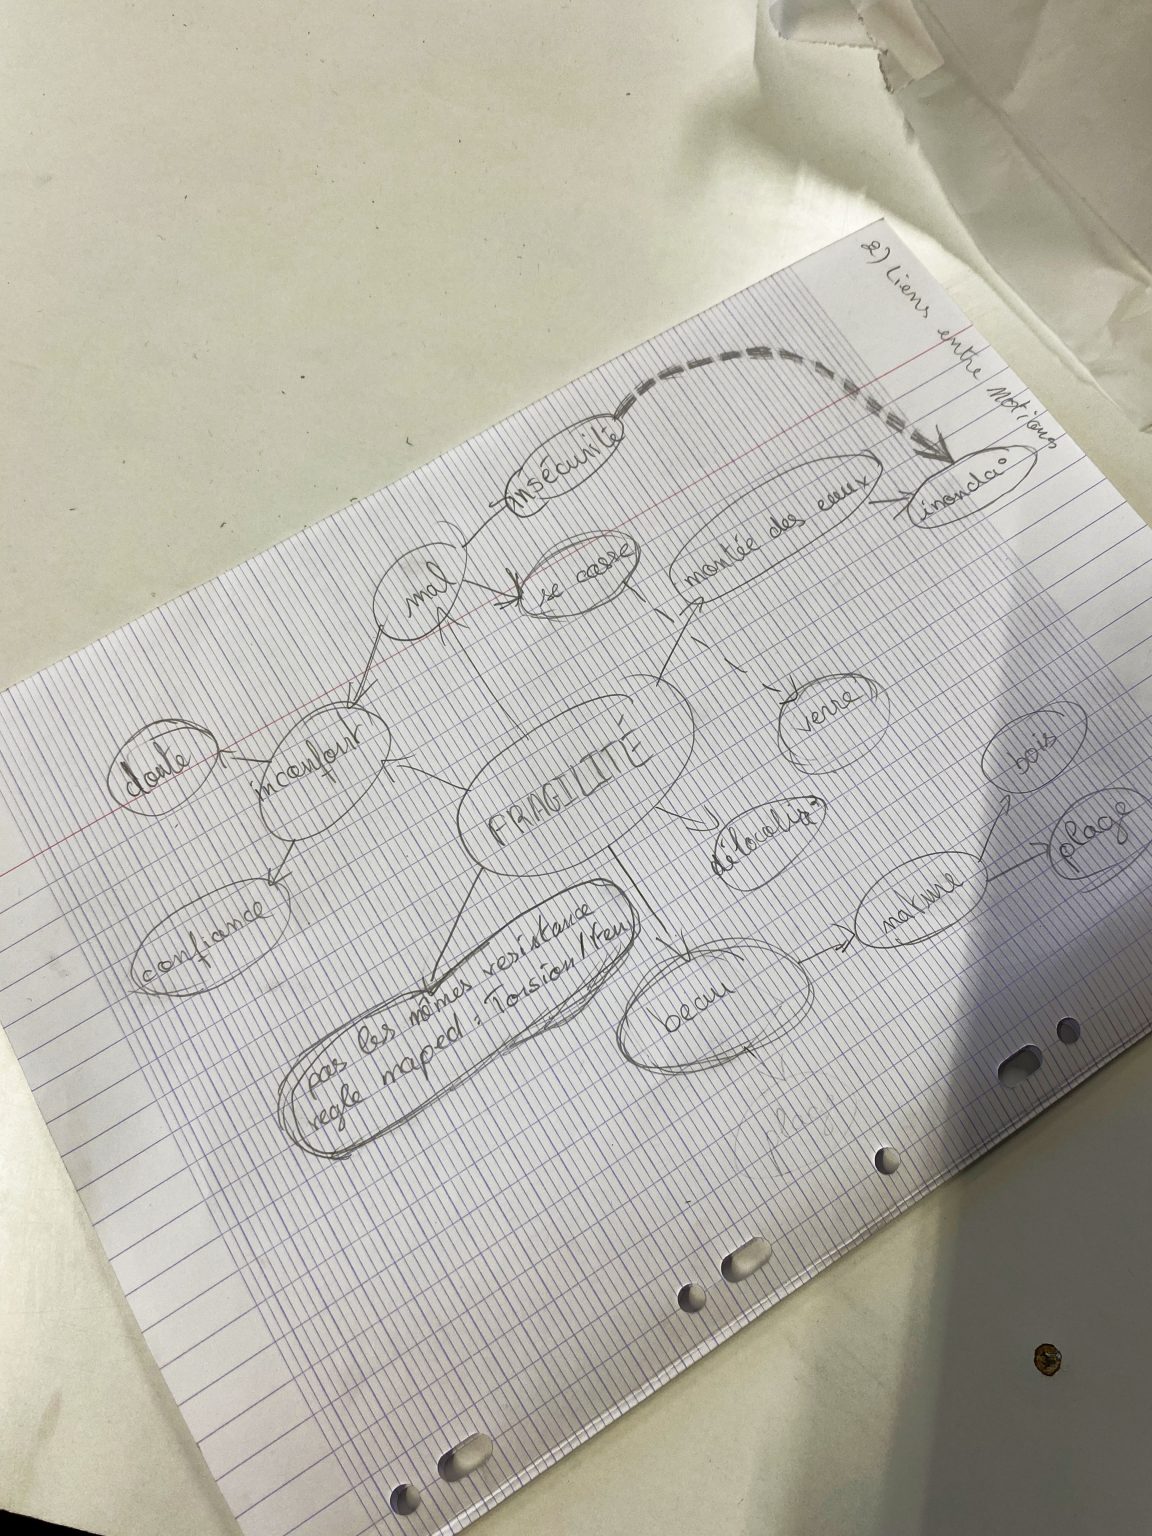 2) Liens entre Notions
insécurité
inonda°
montée des eaux
se casse
mal
verre
bois
plage
doute
inconfort
FRAGILITÉ
délocalis°
nature
confiance
pas les mêmes resistance
regle maped : Torsion / Feu
beau